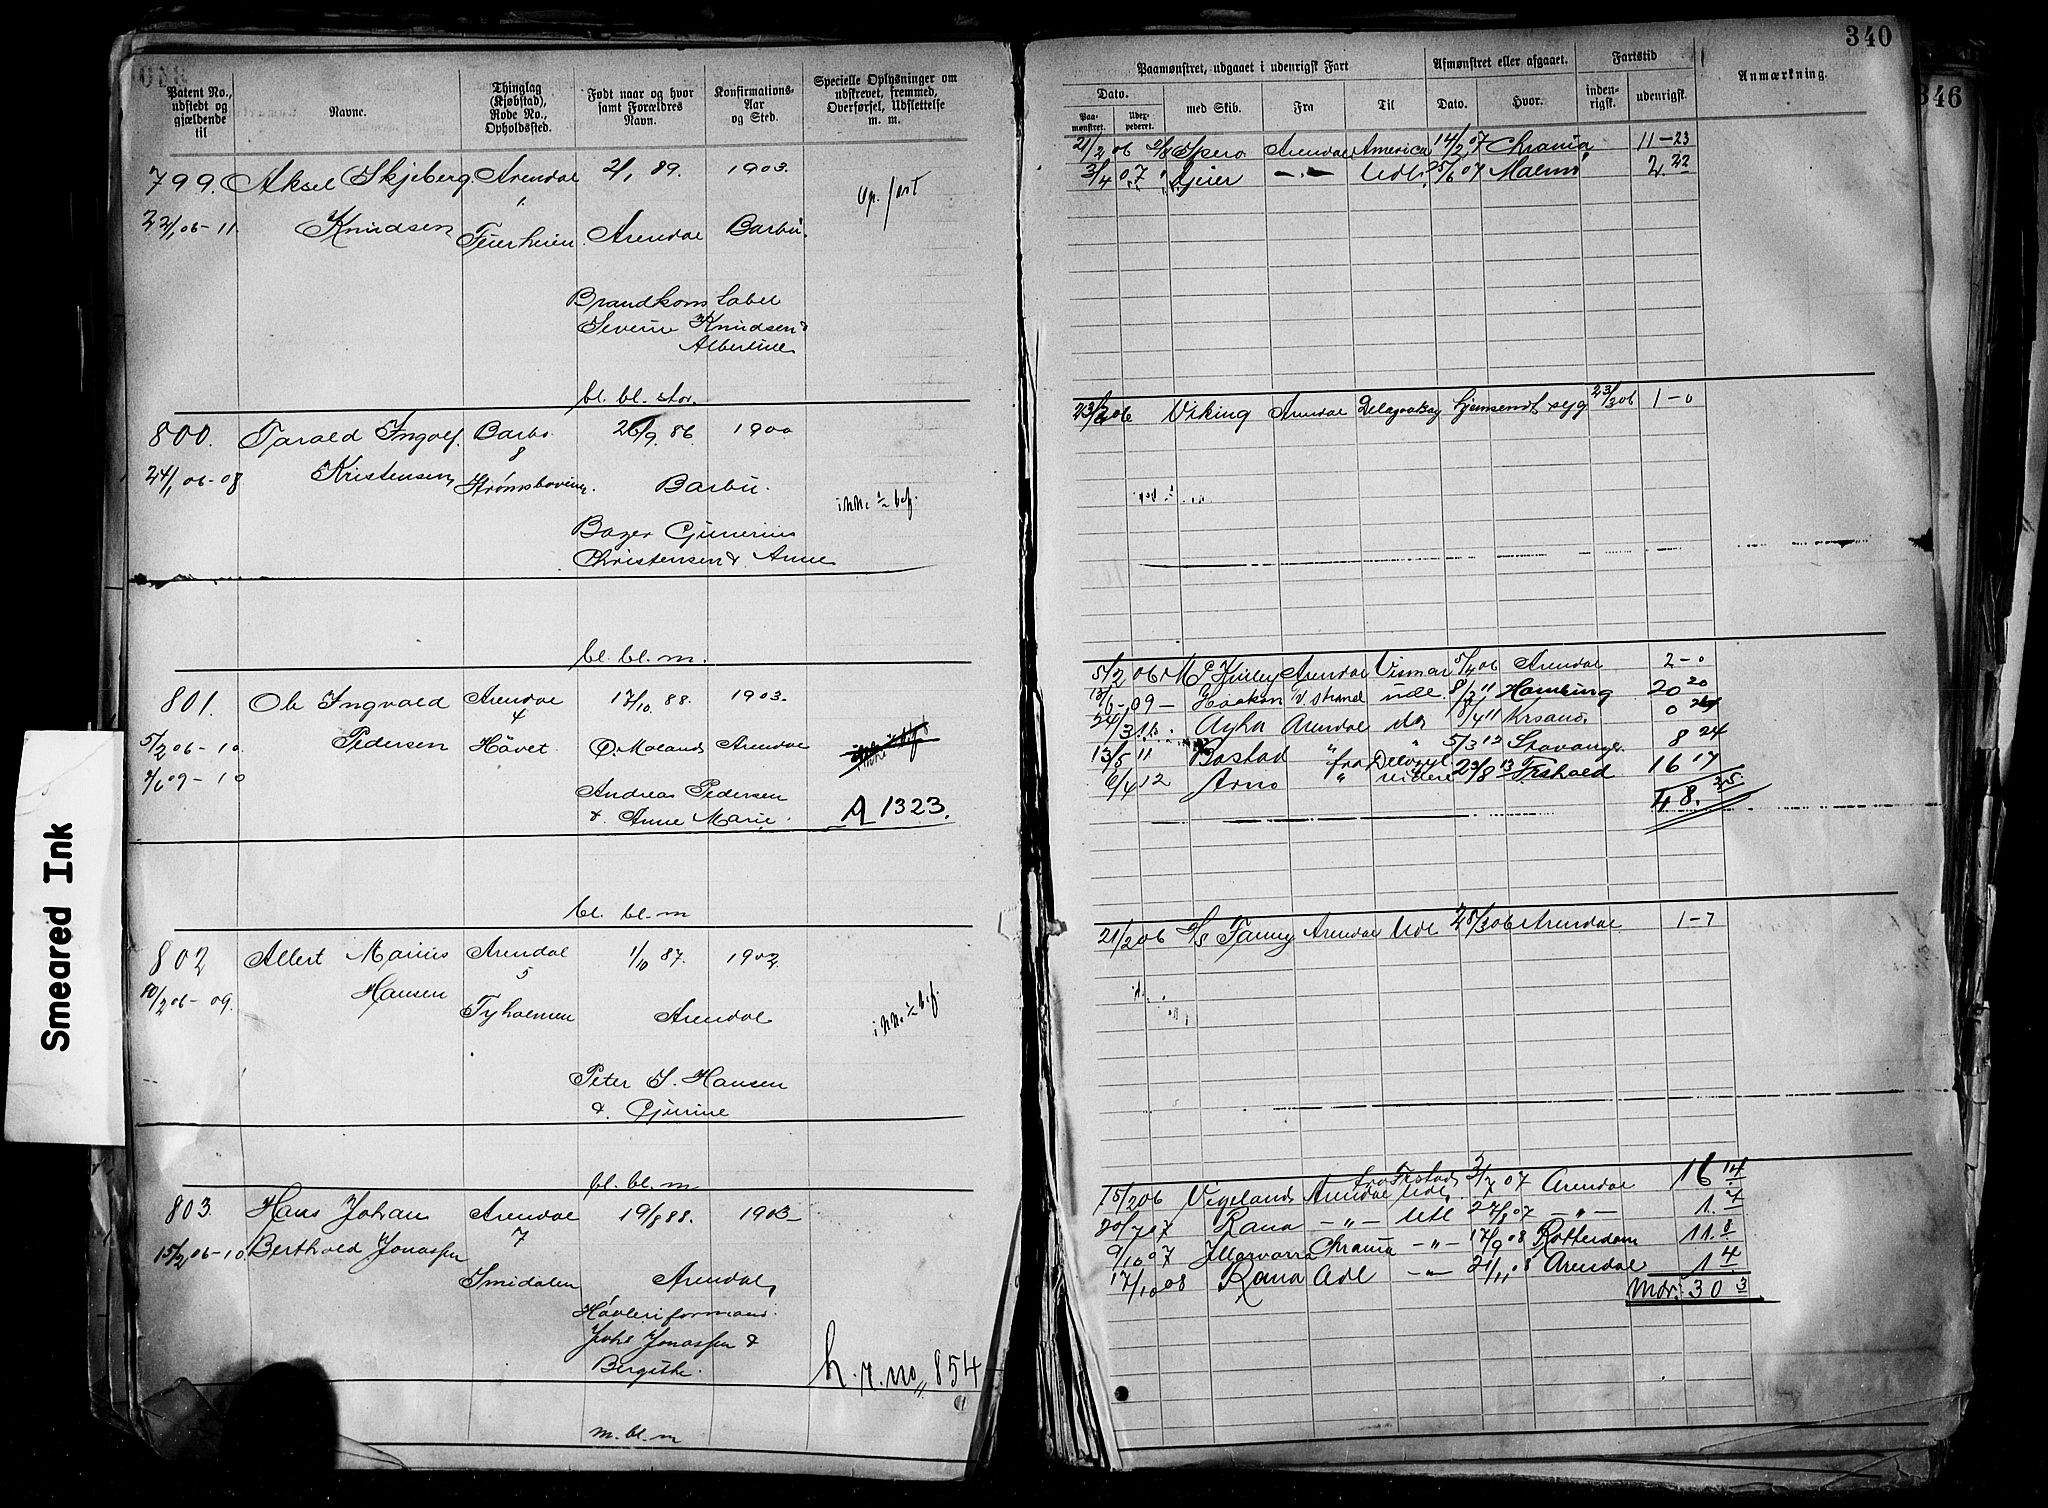 340
346
Smeared Ink
Patent No., udstedt og gjældende til
Navne.
Thinglag (Kjøbstad), Rode No., Opholdssted.
Født naar og hvor samt Forældres Navn.
Konfirmations-Aar og Sted.
Specielle Oplysninger om udskrevet, fremmed, Overførsel, Udslettelse m. m.
Paamønstret, udgaaet i udenrigsk Fart
Afmønstret eller afgaaet.
Fartstid
Anmærkning.
Dato.
Paa-mønstret.
Udex-pederet.
med Skib.
Fra
Til
Dato.
Hvor.
inden-rigsk.
udenrigsk.
799. Aksel Skjeberg Arendal 2/1 89. 1903.
22/1 06-11. Knudsen Arendal Barbu.
Brandkonstabel
Severin Knudsen &
Albertine
bl. bl. stor.
21/2 06 Spero Arendal America 14/2 07 Chrania 11-23
3/4 07 Geier -"- Udl. 25/6 07 Malmø 2.22
800. Tarald Ingvolf Barbo 26/9 86 1900
8
24/1 06-08 Kristensen Strømsbovien. Barbu.
ikke i bef.
Bager Gunerius
Christensen & Anne
bl. bl. m.
23/2 06 Viking Arendal Delagoabay 23/3 06 1-0
801. Ole Ingvald Arendal 17/10 88. 1903.
4
5/2 06-10 Pedersen Håvet Ø. Moland Arendal
7/6 09-10
Andreas Pedersen
& Anne Marie.
A 1323.
bl. bl. m
5/2 06 Arendal Vismar 5/4 06 Arendal 2-0
Haakon v. Strand ude 8/2 11 Hamburg 20 20
Arendal do 8/4 11 Krsand. 0
13/5 11 Bastad " " 5/3 12 Stavanger 8 24
6/4 12 Arno " videre 23/8 13 Frshald 16 17
48.
802 Albert Marius Arendal 1/10 87. 1902.
5
10/2 06-09. Hansen Tyholmen Arendal
ikke i bef.
Peter S. Hansen
& Gunine
bl. bl. m
21/2 06 S/S Fanny Arendal Udl 28/3 06 Arendal 1-7
803. Hans Johan Arendal 19/8 88. 1903-
7
15/2 06-10 Berthold Jonassen
Smidalen Arendal,
Høvleriformand
Johs Jonassen &
Bergithe.
h. r. no,, 854
m. bl. m
15/2 06 Vigeland Arendal Udl. 3/7 07 Arendal 16 14
20/7 07 Rana -"- Udl 27/8 07 -"- 1. 7
9/10 07 Illarvarra Chrania -"- 17/9 08 Rotterdam 11. 8
17/10 08 Rana Udl -"- 21/11 08 Arendal 1 4
Mdr: 30 3